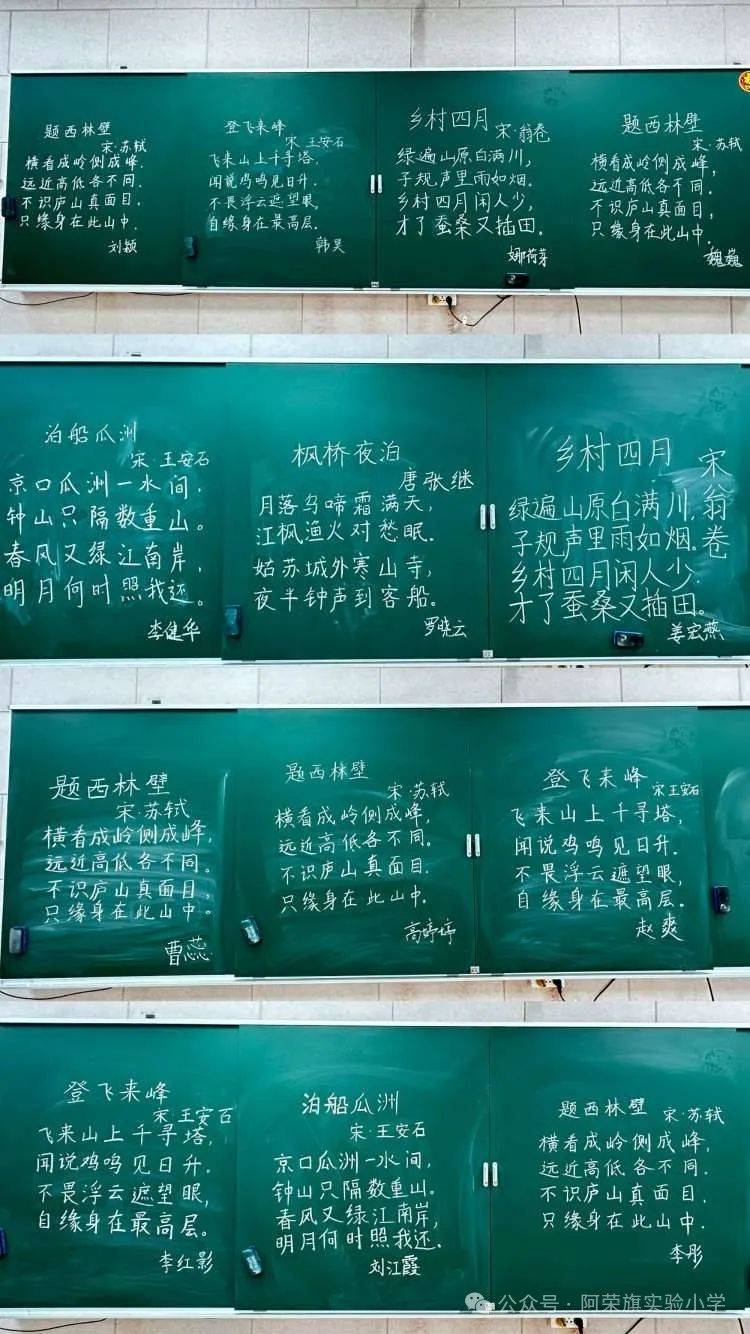 题西林壁
宋·苏轼
横看成岭侧成峰，
远近高低各不同．
不识庐山真面目，
只缘身在此山中．
刘颖
登飞来峰
宋·王安石
飞来山上千寻塔，
闻说鸡鸣见日升．
不畏浮云遮望眼，
自缘身在最高层．
韩昊
乡村四月
宋·翁卷
绿遍山原白满川，
子规声里雨如烟．
乡村四月闲人少，
才了蚕桑又插田．
娜荷芽
题西林壁
宋·苏轼
横看成岭侧成峰，
远近高低各不同．
不识庐山真面目，
只缘身在此山中．
魏巍
泊船瓜洲
宋·王安石
京口瓜洲一水间，
钟山只隔数重山。
春风又绿江南岸，
明月何时照我还。
李健华
枫桥夜泊
唐张继
月落乌啼霜满天，
江枫渔火对愁眠．
姑苏城外寒山寺，
夜半钟声到客船。
罗晓云
乡村四月
宋翁卷
绿遍山原白满川，
子规声里雨如烟。
乡村四月闲人少，
才了蚕桑又插田。
姜宏燕
题西林壁
宋·苏轼
横看成岭侧成峰，
远近高低各不同。
不识庐山真面目
只缘身在此山中。
曹蕊
题西林壁
宋·苏轼
横看成岭侧成峰，
远近高低各不同。
不识庐山真面目．
只缘身在此山中．
高婷婷
登飞来峰
宋王安石
飞来山上千寻塔，
闻说鸡鸣见日升．
不畏浮云遮望眼，
自缘身在最高层．
赵爽
登飞来峰
宋·王安石
飞来山上千寻塔，
闻说鸡鸣见日升．
不畏浮云遮望眼，
自缘身在最高层。
李红影
泊船瓜洲
宋·王安石
京口瓜洲一水间，
钟山只隔数重山。
春风又绿江南岸，
明月何时照我还．
刘江霞
题西林壁
宋·苏轼
横看成岭侧成峰，
远近高低各不同．
不识庐山真面目．
只缘身在此山中．
李彤
公众号·阿荣旗实验小学